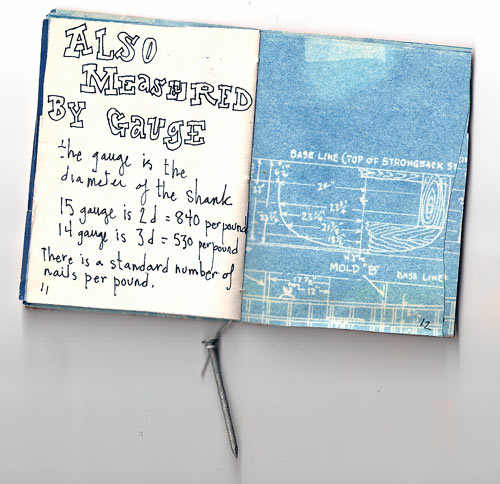 ALSO
MEASURED
BY GAUGE
the gauge is the
diameter of the shank
15 gauge is 2d = 840 per pound
14 gauge is 3d = 530 per pound
There is a standard number of
nails per pound.
11
BASE LINE (TOP OF STRONGBACK
MOLD "B"
BASE LINE
12